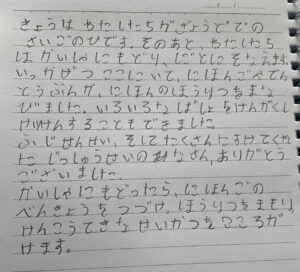 きょうは わたしたちが ぎょうどでの
さいごのひです。そのあと、わたしたち
は かいしゃにもどり、しごとに そなえます。
いっかげつ ここにいて、にほんごべんて
とうぶんか、にほんのほうりつをまな
びました。いろいろな ばしょをけんがくし
けいけんすることもできました。
ふじせんせい、そしてたくさんたすけてくれ
た じっしゅうせいの みなさん、ありがとう
ございました。
かいしゃにもどったら、にほんごの
べんきょうを つづけ、ほうりつを まもり、
けんこうてきな せいかつを こころが
けます。